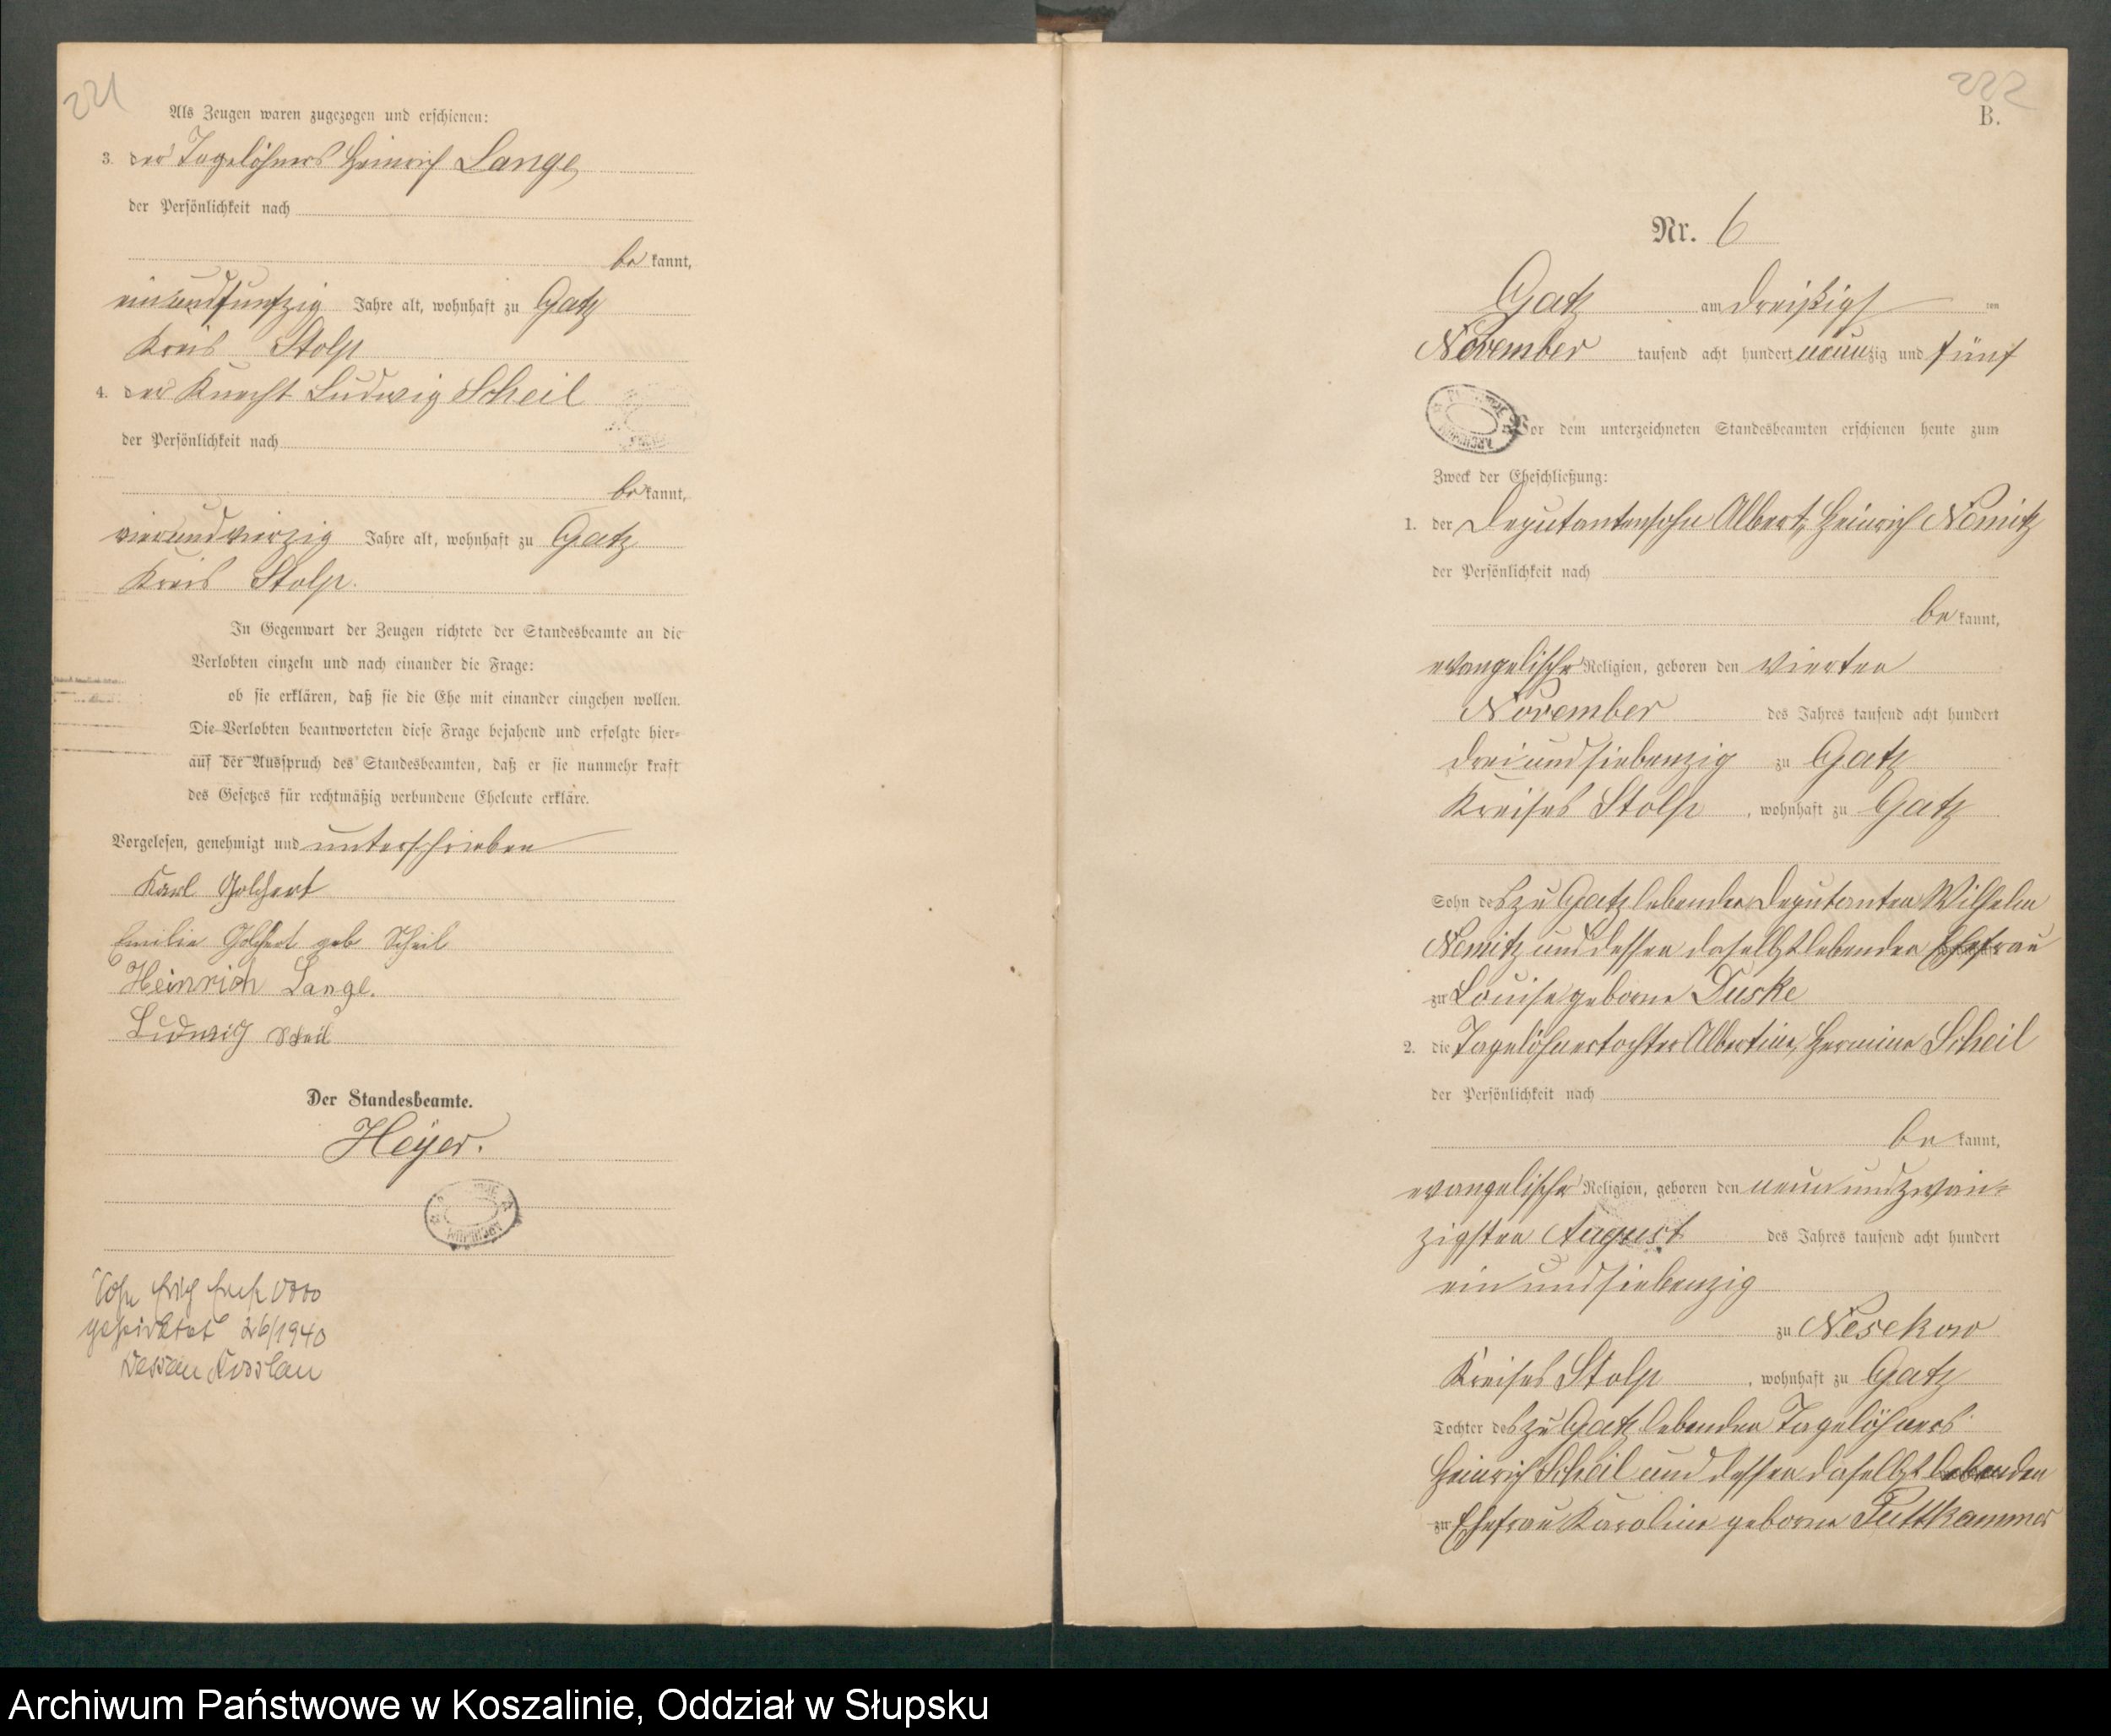 221
Als Zeugen waren zugezogen und erschienen:
3. der Tagelöhners Heinrich Lange
der Persönlichkeit nach
bekannt,
einundfunfzig Jahre alt, wohnhaft zu Gatz
Kreis Stolp
4. der Knecht Ludwig Scheil
der Persönlichkeit nach
bekannt,
vierundvierzig Jahre alt, wohnhaft zu Gatz
Kreis Stolp.
In Gegenwart der Zeugen richtete der Standesbeamte an die
Verlobten einzeln und nach einander die Frage:
ob sie erklären, daß sie die Ehe mit einander eingehen wollen.
Die Verlobten beantworteten diese Frage bejahend und erfolgte hier-
auf der Ausspruch des Standesbeamten, daß er sie nunmehr kraft
des Gesetzes für rechtmäßig verbundene Eheleute erkläre.
Vorgelesen, genehmigt und unterschrieben
Karl Golchert
Emilie Golchert geb Scheil
Heinrich Lange.
Ludwig Scheil
Der Standesbeamte.
Heyer.
geheiratet 26/1940
Dessau Rosslau
222
B.
Nr. 6
Gatz am dreißigsten
November tausend acht hundert neunzig und fünf
Vor dem unterzeichneten Standesbeamten erschienen heute zum
Zweck der Eheschließung:
1. der Deputantensohn Albert, Heinrich Nemitz
der Persönlichkeit nach
bekannt,
evangelischer Religion, geboren den vierten
November des Jahres tausend acht hundert
dreiundsiebenzig zu Gatz
Kreises Stolp, wohnhaft zu Gatz
Sohn des zu Gatz lebenden Deputanten Wilhelm
Nemitz und dessen daselbst lebenden Ehefrau
zu Louise geborne Duske
2. die Tagelöhnertochter Albertine, Hermine Scheil
der Persönlichkeit nach
bekannt,
evangelischer Religion, geboren den neunundzwan-
zigsten August des Jahres tausend acht hundert
einundsiebenzig
zu Nesekow
Kreises Stolp, wohnhaft zu Gatz
Tochter des zu Gatz lebenden Tagelöhners
Heinrich Scheil und dessen daselbst lebenden
zu Ehefrau Karoline geborne Puttkammer
Archiwum Państwowe w Koszalinie, Oddział w Słupsku